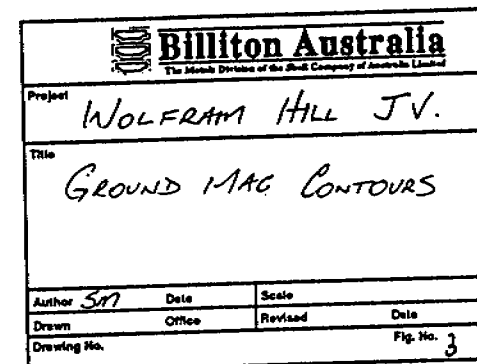 Billiton Australia
The Metals Division of the Shell Company of Australia Limited
Project
WOLFRAM HILL JV.
Title
GROUND MAG CONTOURS
Author SM Date Scale
Drawn Office Revised Date
Drawing No. Fig. No. 3